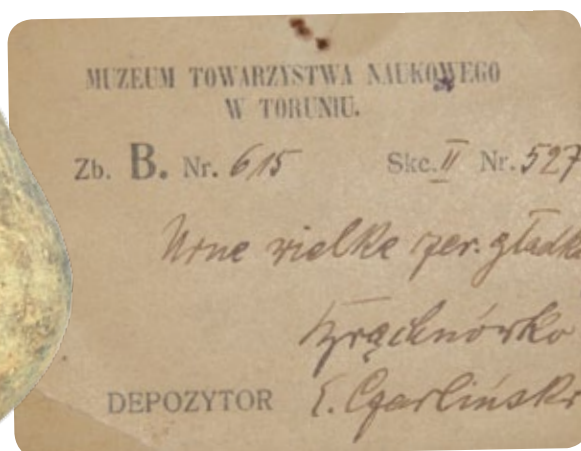 MUZEUM TOWARZYSTWA NAUKOWEGO
W TORUNIU.
Zb. B. Nr. 615 Skc. II Nr. 527
Urne wielke
DEPOZYTOR E. Czarliński